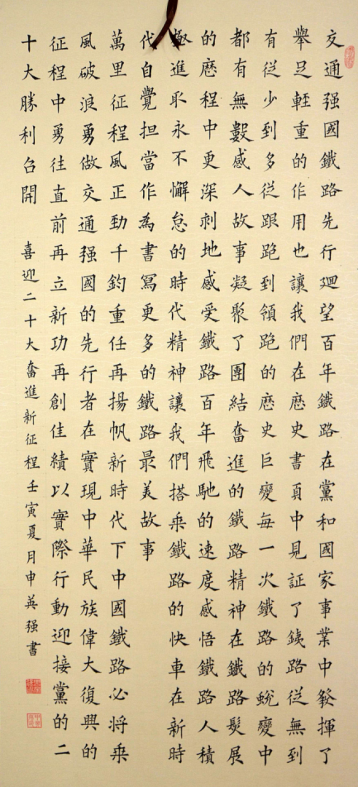 交通强國鐵路先行迴望百年鐵路在黨和國家事業中發揮了
舉足輕重的作用也讓我們在歷史書頁中見証了鉄路從無到
有從少到多從跟跑到領跑的歷史巨變每一次鐵路的蛻變中
都有無數感人故事凝聚了團結奮進的鐵路精神在鐵路髮展
的歷程中更深刺地感受鐵路百年飛馳的速度感悟鐵路人積
極進取永不懈怠的時代精神讓我們搭乘鐵路的快車在新時
代自覺担當作為書寫更多的鐵路最美故事
萬里征程風正勁千鈞重任再揚帆新時代下中國鐵路必將乘
風破浪勇做交通强國的先行者在實現中華民族偉大復興的
征程中勇往直前再立新功再創佳績以實際行動迎接黨的二
十大勝利召開 喜迎二十大奮進新征程壬寅夏月申英强書